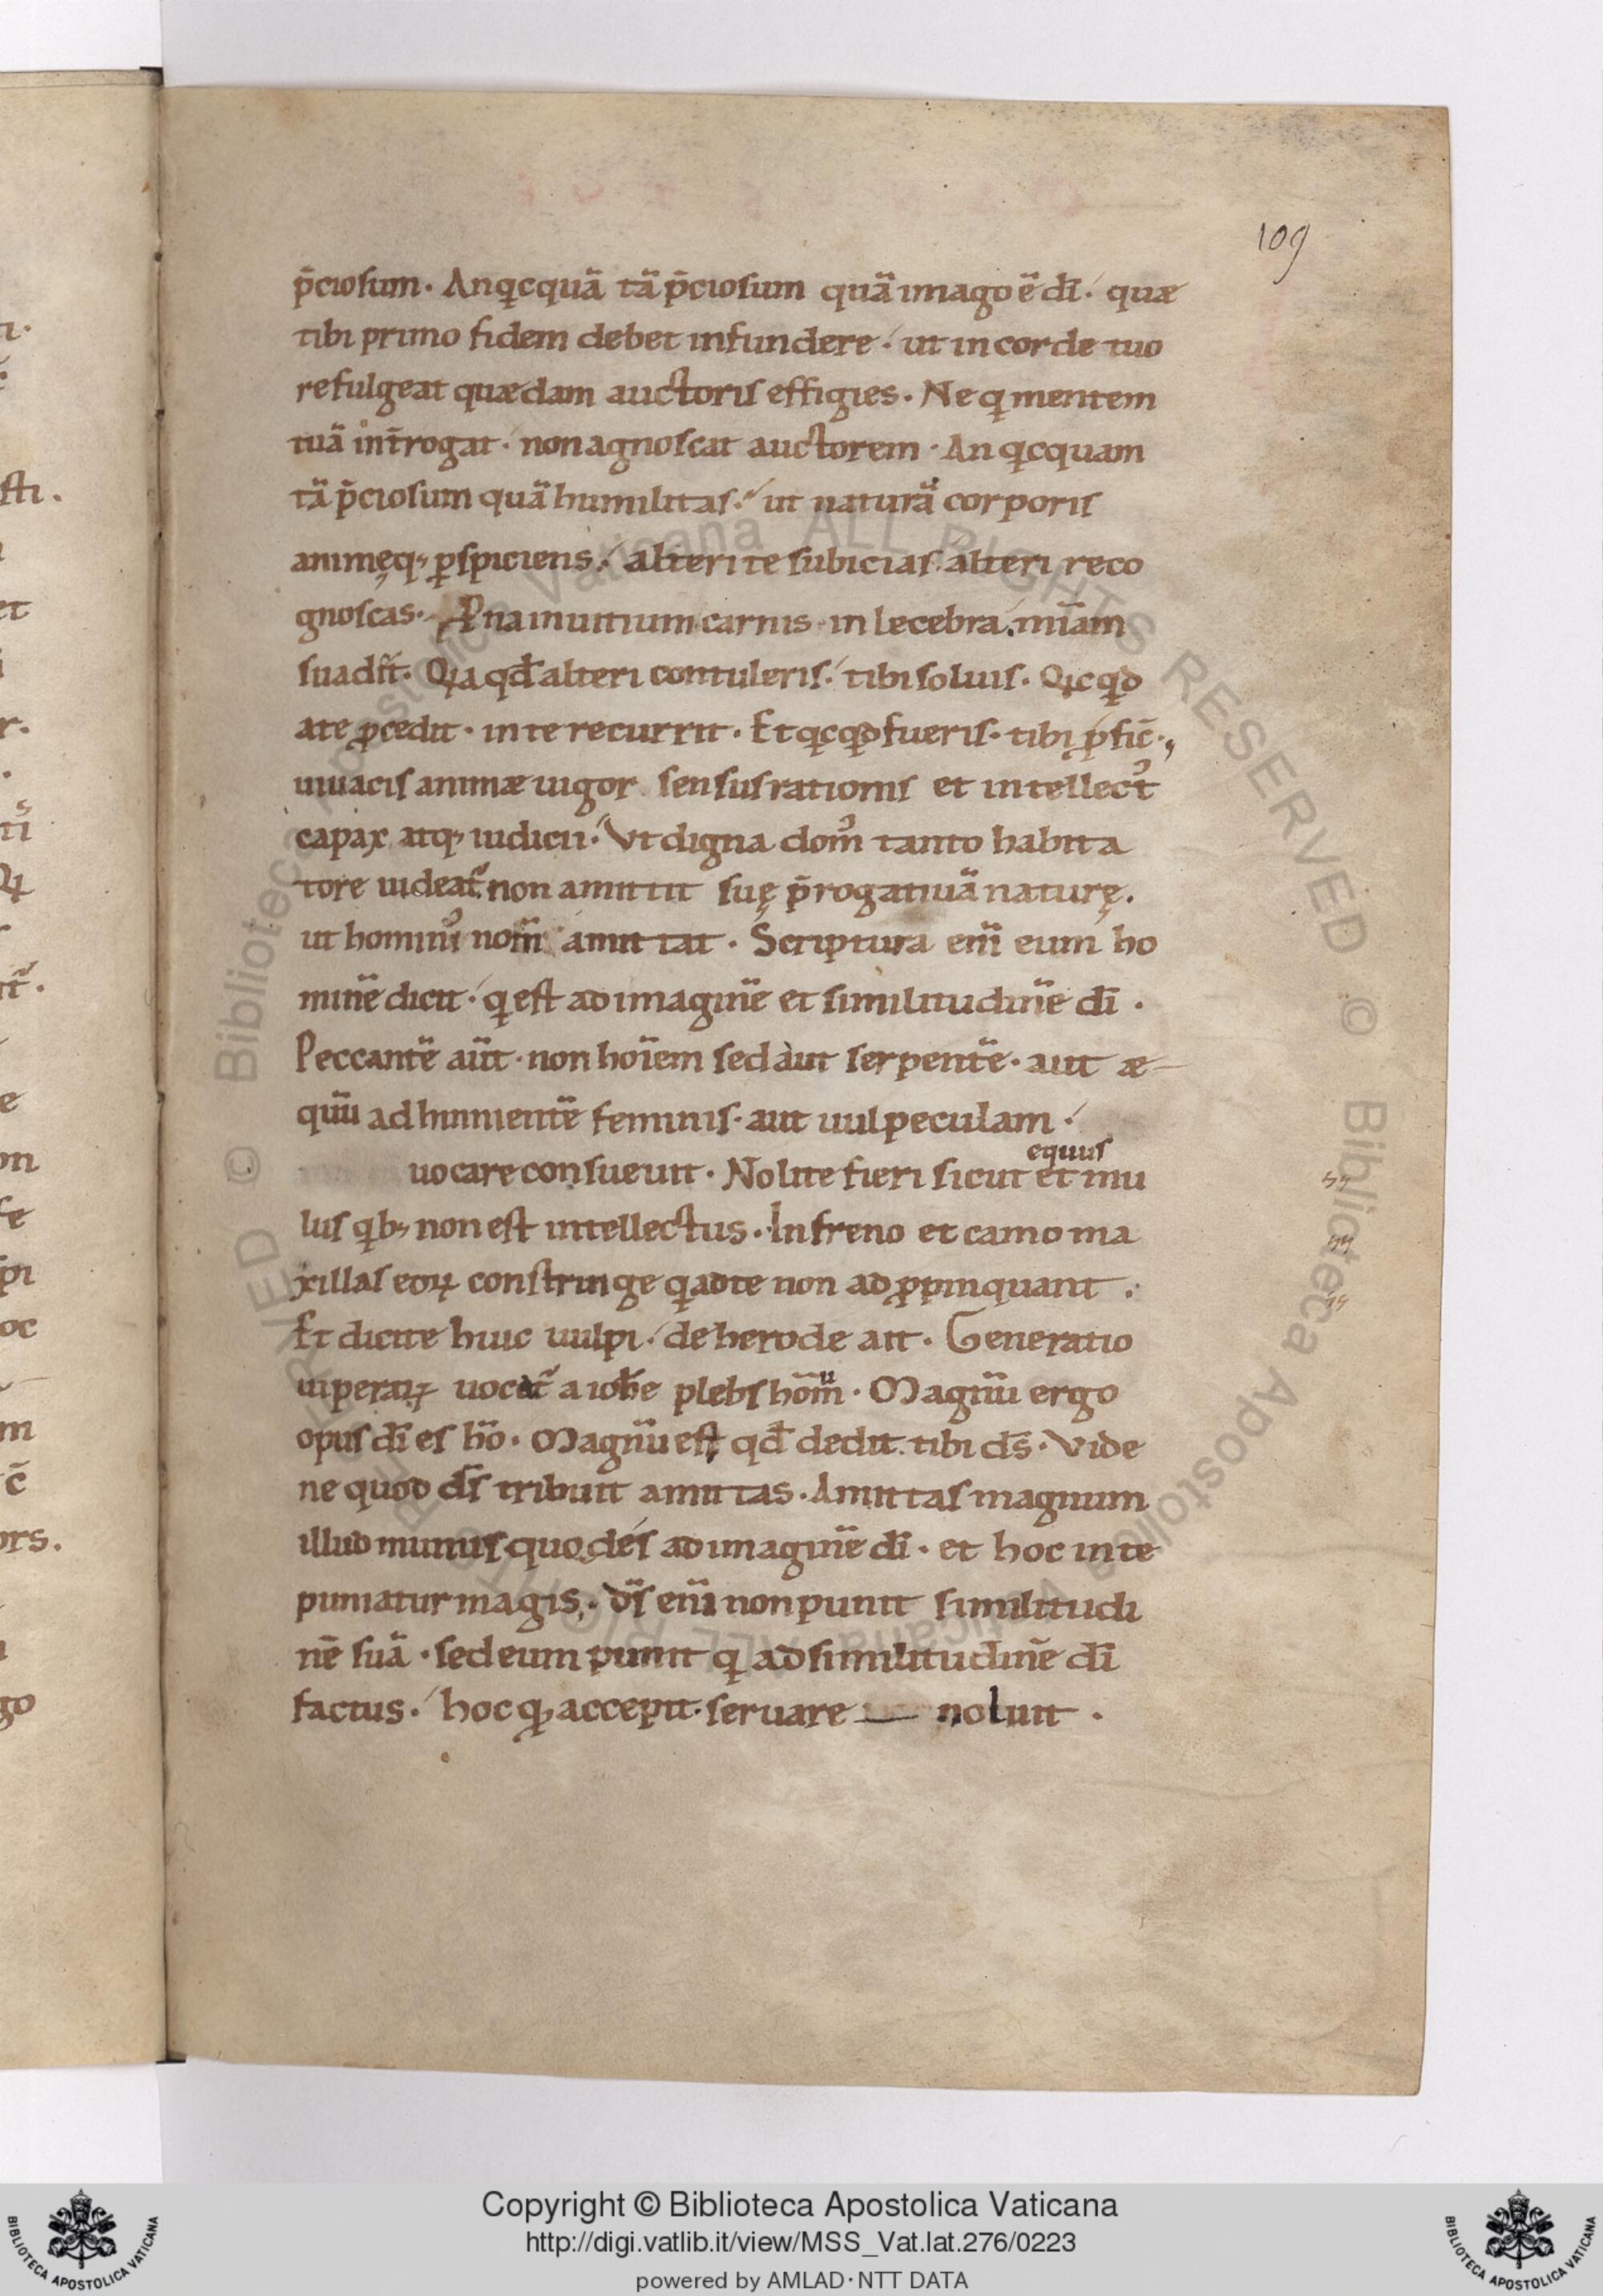 109
p̄ciosum. An qicquā tā p̄ciosum quā imago ē dī. quæ
tibi primo fidem debet infundere. ut in corde tuo
refulgeat quædam auctoris effigies. Ne qi mentem
tuā int̄rogat. non agnoscat auctorem. An qicquam
tā p̄ciosum quā humilitas. ut naturā corporis
animęq; p̱spiciens. alteri te subicias alteri reco
gnoscas.
sua dr̄t. Qia qd̄ alteri contuleris. tibi soluis. Qicqid
a te ꝓcedit. in te recurrit. Et qicqid fueris. tibi ꝓfic̄.
uiuacis animæ uigor sensus rationis et intellectꝰ
capax atq; iudicii. Vt digna domꝰ tanto habita
tore uideat̃ non amittit suę p̄rogatiuā naturę.
ut hominis nom̄ amittat. Scriptura eni̅ eum ho
minē dicit. qi est ad imaginē et similitudinē dī.
Peccantē aūt. non hoīem sed aut serpentē. aut æ
quū adhinnientē feminis. aut uulpeculam.
uocare consueuit. Nolite fieri sicut equus et mu
lus qib; non est intellectus. In freno et camo ma
xillas eoꝝ constringe qi ad te non adꝓpinquant.
Et dicite huic uulpi. de herode ait. Generatio
uiperaꝝ uocat̃ a ioh̄e plebs hom̄u. Magnū ergo
opus dī es hō. Magnū est qd̄ dedit tibi ds̄. Vide
ne quod ds̄ tribuit amittas. Amittas magnum
illud munus quod es ad imaginē dī. et hoc in te
puniatur magis. ds̄ eni̅ non punit similitudi
nē suā. sed eum punit qi ad similitudinē dī
factus. hoc qd accepit seruare noluit.
Copyright © Biblioteca Apostolica Vaticana
http://digi.vatlib.it/view/MSS_Vat.lat.276/0223
powered by AMLAD·NTT DATA
BIBLIOTECA APOSTOLICA VATICANA
BIBLIOTECA APOSTOLICA VATICANA